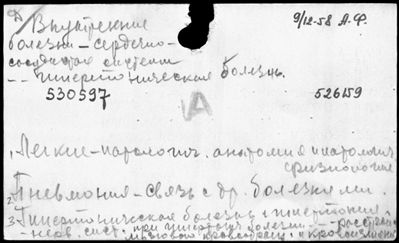 Д/ Внутренние
9/12-58 А.Ф.
болезни - сердечно-
сосудистая система
-- гипертоническая болезнь.
530597
526159
А
1. Легкие - патологич. анатомия и патологич.
физиология
2. Пневмония - связь с др. болезнями.
3. Гипертоническая болезнь и гипертония -
нерв. сист. при гипертонич. болезни -
мозгового кровообращ.